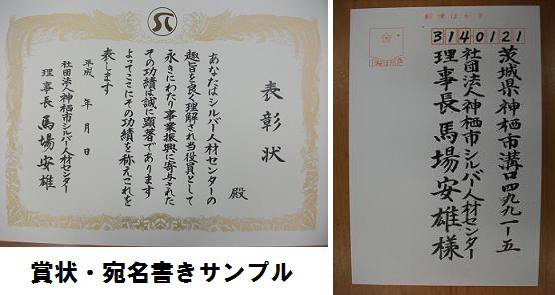 表彰状
殿
あなたはシルバー人材センターの
趣旨を良く理解され当役員として
永きにわたり事業振興に寄与された
その功績は誠に顕著であります
よってここにその功績を称えこれを
表します
平成 年 月 日
社団法人神栖市シルバー人材センター
理事長 馬場安雄
郵便はがき
3140121
茨城県神栖市溝口四九九一-五
社団法人神栖市シルバー人材センター
理事長 馬場安雄様
賞状・宛名書きサンプル